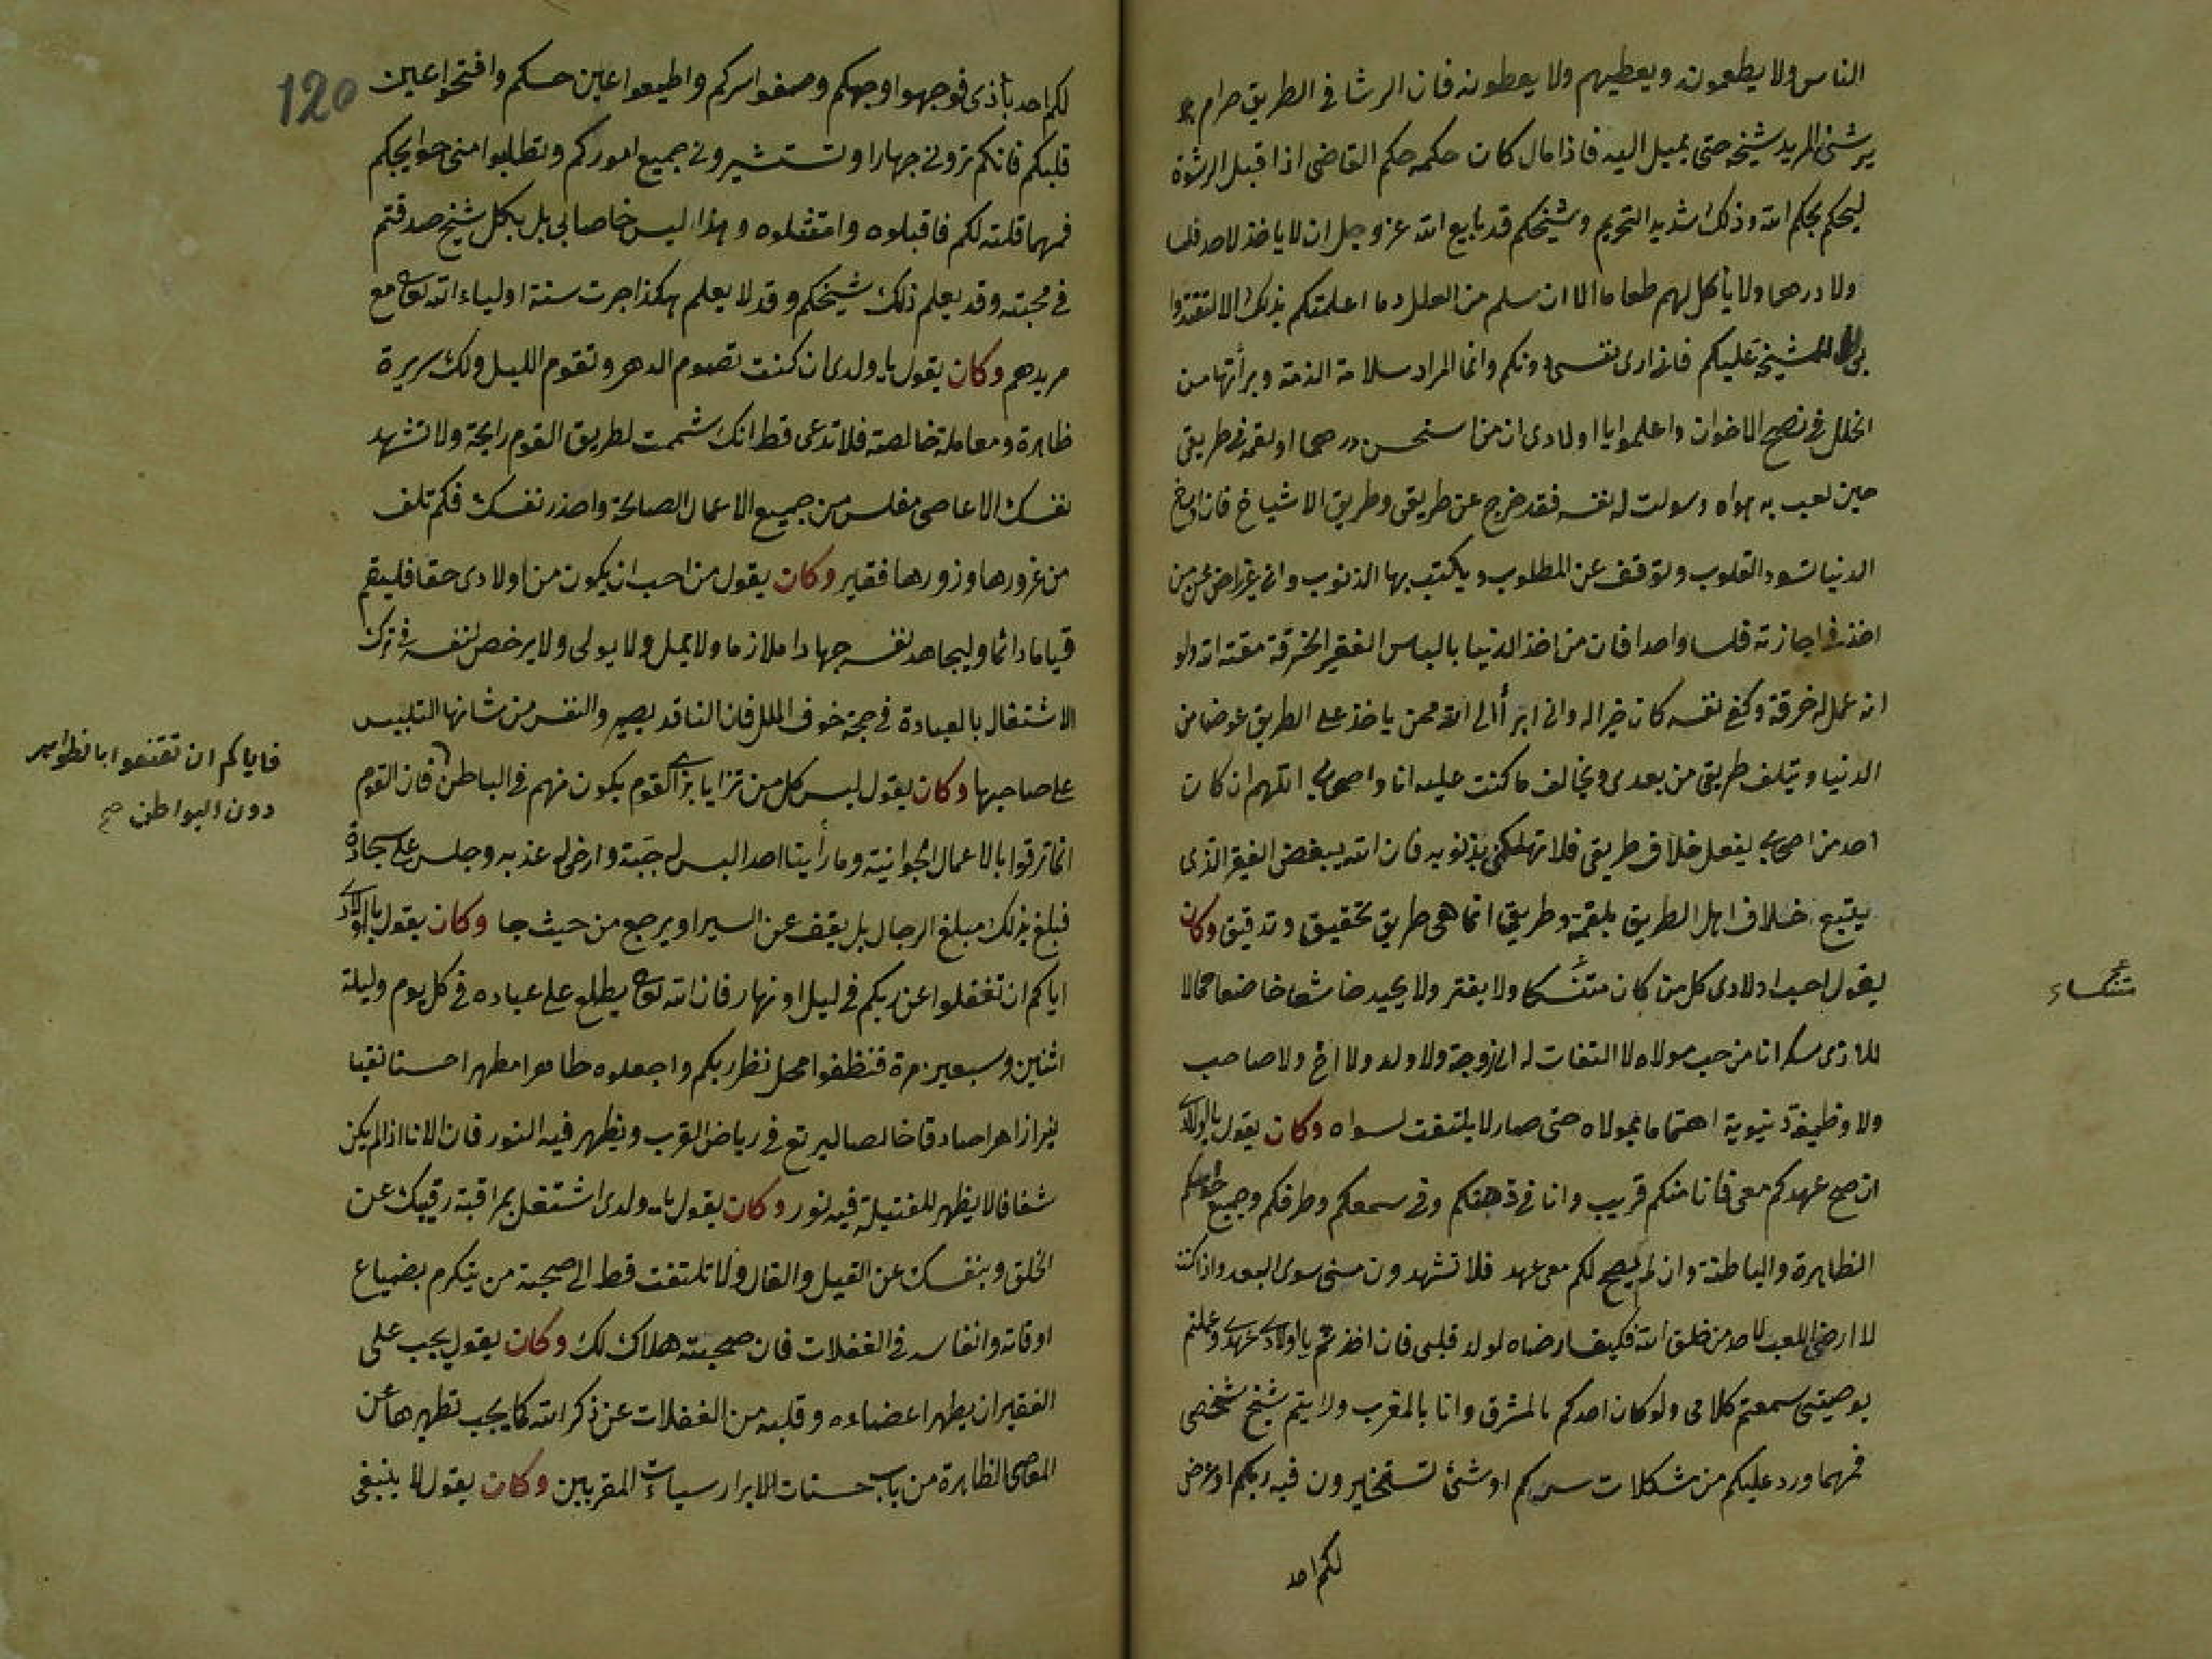 الناس ولا يطعمونه ويعطيهم ولا يعطونه فان الرشا في الطريق حرام
يرشي المريد شيخه حتى يميل اليه فاذا مال كان حكمه حكم القاضي اذا قبل الرشوة
ليحكم بحكم الله وذلك شديد التحريم وشيخكم قد بايع الله عز وجل ان لا ياخذ لاحد فلسا
ولا درهما ولا يأكل لهم طعاما الا ان سلم من العلل وما اعلمتكم بذلك الا لتقتدوا
بي لا لمشيخة عليكم فاني ارى نفسي دونكم وانما المراد سلامة الذمة وبرأتها من
الخلل في نصح الاخوان واعلموا يا اولادى ان من استحسن درهما او لقمة في طريقي
حين لعب به هواه وسولت له نفسه فقد خرج عن طريقي وطريق الاشياخ فان اوساخ
الدنيا تسود القلوب وتوقف عن المطلوب ويكتب بها الذنوب واني غير راض عن من
اخذ في اجازته فلسا واحدا فان من اخذ الدنيا بالباس الفقير الخرقة مقته الله ولو
انه عمل له خرقة وكف نفسه كان خيرا له واني ابرأ الى الله ممن ياخذ على الطريق عوضا من
الدنيا ويتلف طريقي من بعدى ويخالف ما كنت عليه انا واصحابي اللهم ان كان
احد من اصحابي يفعل خلاف طريقي فلا تهلكني بذنوبه فان الله يبغض الفقير الذى
يتبع خلاف اهل الطريق بلقمة وطريقي انما هي طريق تحقيق وتدقيق وكان
يقول احب اولادى كل من كان متنسكا ولا يفتر ولا يحيد خاشعا خاضعا حمالا
للاذى سكرانا من حب مولاه لا التفات له الى زوجة ولا ولد ولا اخ ولا صاحب
ولا وظيفة دنيوية اهتماما بمولاه حتى صار لا يلتفت لسواه وكان يقول يا اولادى
ان صح عهدكم معي فانا منكم قريب وانا في ذهنكم وفي سمعكم وطرفكم وجميع حواسكم
الظاهرة والباطنة وان لم يصح لكم معي عهد فلا تشهدون مني سوى البعد واذا كنت
لا ارضى اللعب لاحد من خلق الله فكيف ارضاه لولد قلبي فان اخذتم يا اولادى عهدى وعملتم
بوصيتي سمعتم كلامي ولو كان احدكم بالمشرق وانا بالمغرب ورايتم شبح شخصي
فمهما ورد عليكم من مشكلات سركم او شئ تستخيرون فيه ربكم او عرض
لكم احد
لكم احد بأذى فوجهوا وجهكم وصفوا سركم واطبعوا عين حسكم وافتحوا عين
قلبكم فانكم تروني جهارا وتستشيروني في جميع اموركم وتطلبوا مني حوايجكم
فمهما قلته لكم فاقبلوه وامتثلوه وهذا ليس خاصا بي بل بكل شيخ صدقتم
في محبته وقد يعلم ذلك شيخكم وقد لا يعلم هكذا جرت سنة اولياء الله تعالى مع
مريدهم وكان يقول يا ولدى ان كنت تصوم الدهر وتقوم الليل ولك سريرة
ظاهرة ومعاملة خالصة فلا تدعى قط انك شممت لطريق القوم رايحة ولا تشهد
نفسك الا عاصي مفلس من جميع الاعمال الصالحة واحذر نفسك فكم تلف
من غرورها وزورها فقير وكان يقول من احب ان يكون من اولادى حقا فليقم
قياما دائما وليجاهد نفسه جهادا ملازما ولا يمل ولا يولى ولا يرخص لنفسه في ترك
الاشتغال بالعبادة في حجة خوف الملل فان الناقد بصير والنفس من شانها التلبيس
على صاحبها وكان يقول ليس كل من تزايا بزى القوم يكون منهم في الباطن فان القوم
فاياكم ان تقنعوا بالظواهر
دون البواطن صح
انما ترقوا بالاعمال الجوانية وما رأينا احدا لبس له جبة وارخى له عذبه وجلس على سجادة
فبلغ بذلك مبلغ الرجال بل يقف عن السير او يرجع من حيث جا وكان يقول يا اولادى
اياكم ان تغفلوا عن ربكم في ليل او نهار فان الله تعالى يطلع على عباده في كل يوم وليلة
اثنين وسبعين مرة فنظفوا محل نظر ربكم واجعلوه طاهرا مطهرا حسنا نقيا
نيرا زاهرا صادقا خالصا ليرتع في رياض القرب ويظهر فيه النور فان الانا اذا لم يكن
شفافا لا يظهر للفتيلة فيه نور وكان يقول يا ولدى اشتغل بمراقبة رقيبك عن
الخلق وبنفسك عن القيل والقال ولا تلتفت قط الى صحبة من يتكرم بضياع
اوقاته وانفاسه في الغفلات فان صحبته هلاك لك وكان يقول يجب على
الفقير ان يطهر اعضاءه وقلبه من الغفلات عن ذكر الله كما يجب تطهيرها عن
المعاصي الظاهرة من باب حسنات الابرار سيات المقربين وكان يقول لا ينبغي
120